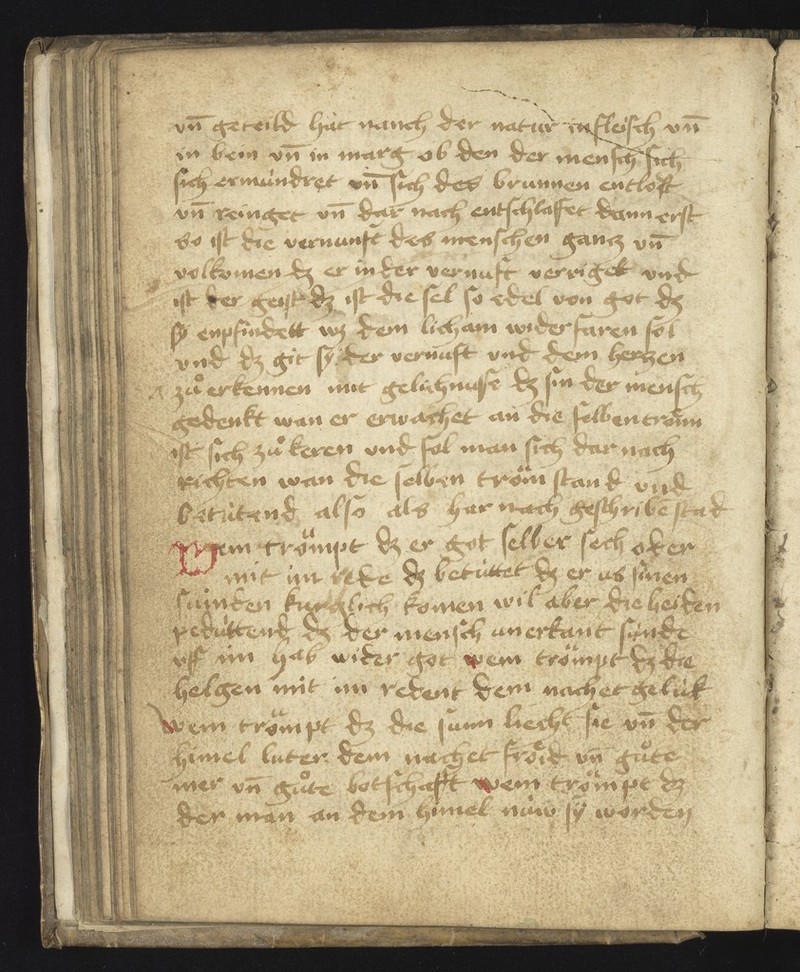 vn̄ geteild hat nauch der natur in fleisch vn̄
in bein vn̄ in marg ob den der mensch sich
sich ermundret vn̄ sich des brunnen entloͤst
vn̄ reinget vn̄ dar nach entschlaffet dann erst
so ist die vernunft des menschen gancz vn̄
volkomen dz er in der vernuft verriget vnd
ist der geist dz ist die sel so edel von got dz
sy enpfindett wz dem licham widerfaren sol
vnd dz git sy der vernuft vnd dem herczen
zuͦ erkennen mit gelichnusse dz sin der mensch
gedenkt wan er erwachet an die selben troͤm
ist sich zuͦ keren vnd sol man sich dar nach
richten wan die selben troͤm stand vnd
betutend also als har nach geschribe stad
Wem troͤmpt dz er got selber sech oder
mit im rede dz betuttet dz er us sinen
sunden kurczlich komen wil aber die heiden
peduttend dz der mensch unerkant sunde
uff im hab wider got wem troͤmpt dz die
helgen mit im redent dem nachet geluk
Wem troͤmpt dz die sunn liecht sie vn̄ der
himel luter dem nachet froͤid vn̄ guͦte
mer vn̄ guͦte botschafft wem troͤmpt dz
der man an dem himel nuw sy worden